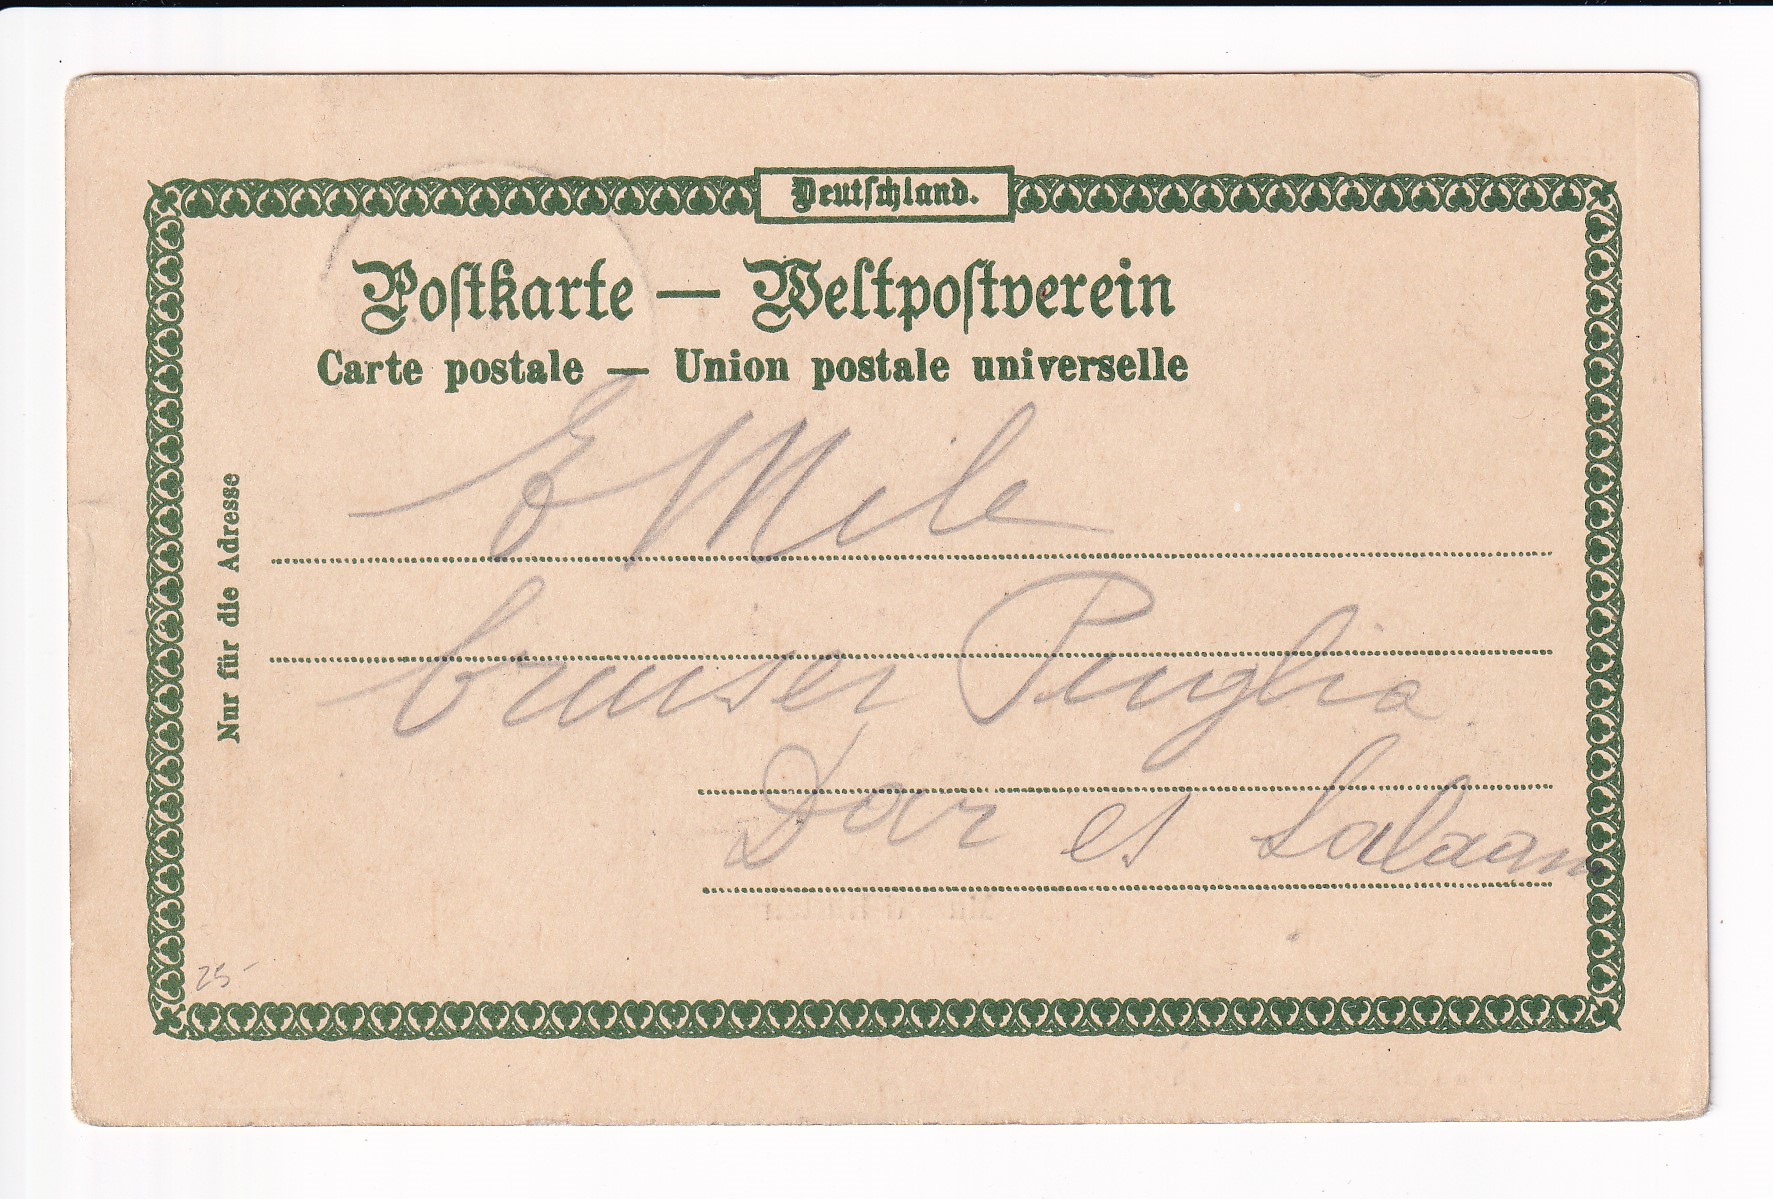 Deutschland.
Postkarte — Weltpostverein
Carte postale — Union postale universelle
Nur für die Adresse
E Mile
cruiser Puglia
Dar es Salaam
25-